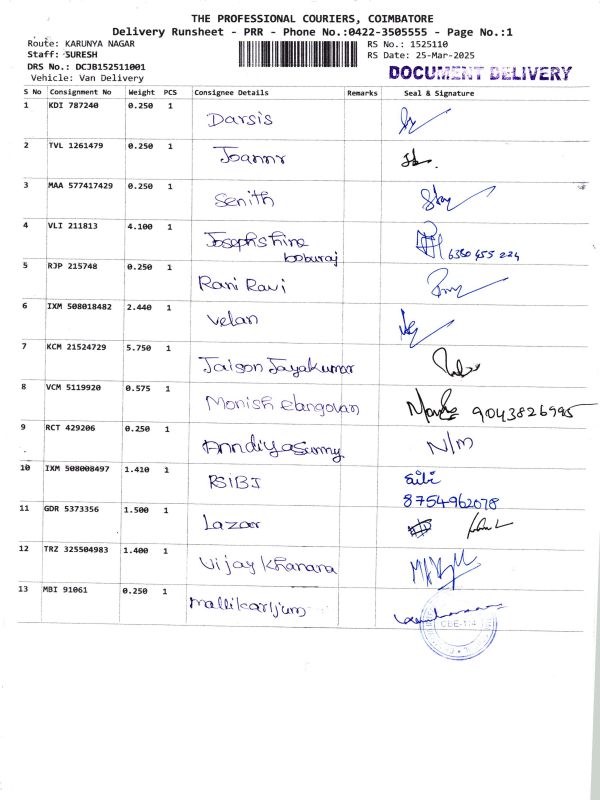 THE PROFESSIONAL COURIERS, COIMBATORE
Delivery Runsheet - PRR - Phone No.:0422-3505555 - Page No.:1
Route: KARUNYA NAGAR RS No.: 1525110
Staff: SURESH RS Date: 25-Mar-2025
DRS No.: DCJB152511001
Vehicle: Van Delivery DOCUMENT DELIVERY
S No Consignment No Weight PCS Consignee Details Remarks Seal & Signature
1 KDI 787240 0.250 1 Darsis
2 TVL 1261479 0.250 1 Joannr
3 MAA 577417429 0.250 1 Senith
4 VLI 211813 4.100 1 Josephshine
boburaj 6380 455 224
5 RJP 215748 0.250 1 Rani Ravi
6 IXM 508018482 2.440 1 Velan
7 KCM 21524729 5.750 1 Jaison Jayakumar
8 VCM 5119920 0.575 1 Monish elangovan 9043826995
9 RCT 429206 0.250 1 Anndiya Sunny N/m
10 IXM 508008497 1.410 1 RSIBI Sibi
8754962078
11 GDR 5373356 1.500 1 Lazar
12 TRZ 325504983 1.400 1 Vijay Khanana
13 MBI 91061 0.250 1 mallikarljum
CBE-114